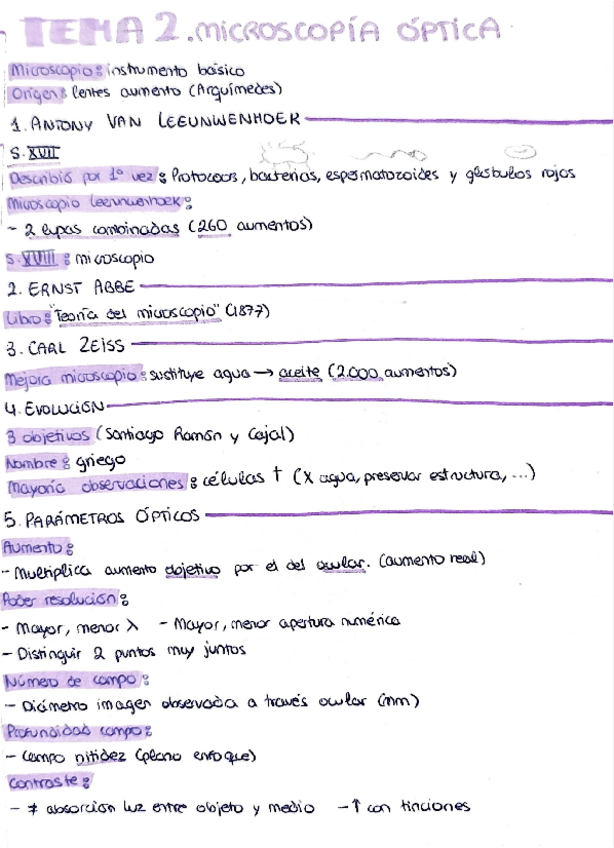 TEMA 2. MICROSCOPÍA ÓPTICA
Microscopio: instrumento básico
Origen: lentes aumento (Arquímedes)
1. ANTONY VAN LEEUNWENHOEK
S. XVII
Describió por 1º vez: Protozoos, bacterias, espermatozoides y glóbulos rojos
Microscopio Leeunwenhoek:
- 2 lupas combinadas (260 aumentos)
S. XVIII: microscopio
2. ERNST ABBE
Libro: "Teoría del microscopio" (1877)
3. CARL ZEISS
Mejora microscopio: sustituye agua → aceite (2.000 aumentos)
4. EVOLUCIÓN
3 objetivos (Santiago Ramón y Cajal)
Nombre: griego
Mayoría observaciones: células † (X agua, preservar estructura, ...)
5. PARÁMETROS ÓPTICOS
Aumento:
- Multiplica aumento objetivo por el del ocular. (aumento real)
Poder resolución:
- Mayor, menor λ - Mayor, menor apertura numérica
- Distinguir 2 puntos muy juntos
Número de campo:
- Diámetro imagen observada a través ocular (mm)
Profundidad campo:
- Campo nitidez (plano enfoque)
Contraste:
- ≠ absorción luz entre objeto y medio - ↑ con tinciones